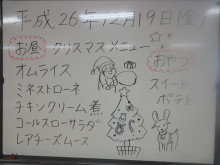 平成26年12月19日(金)
お昼 クリスマスメニュー
オムライス
ミネストローネ
チキンクリーム煮
コールスローサラダ
レアチーズムース
おやつ
スイート
ポテト